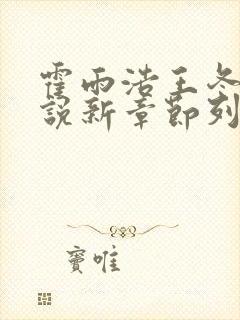 霍雨浩王冬
說新章節列
窦唯